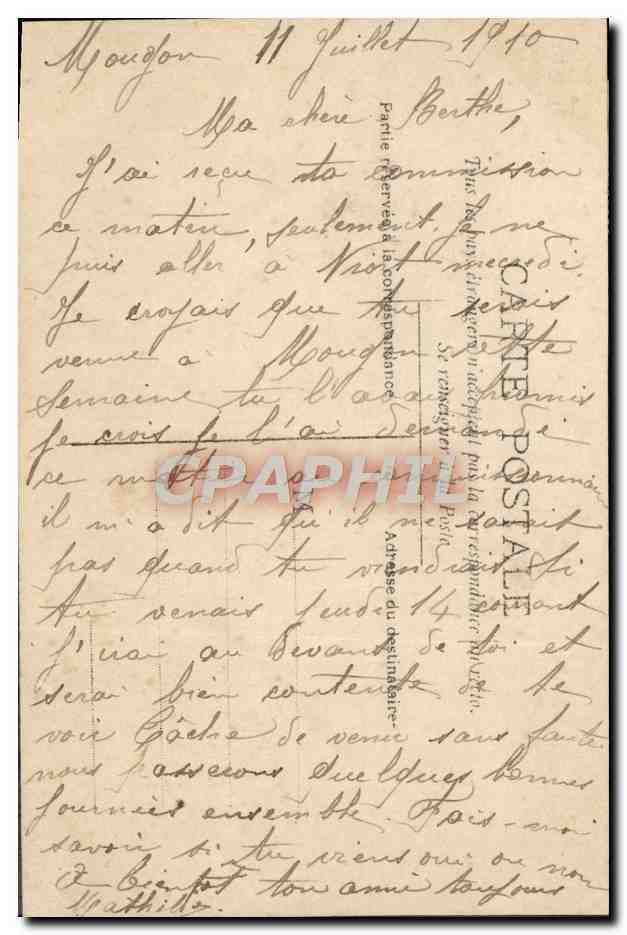 Mougon 11 Juillet 1910
Ma chère Berthe,
J'ai reçu ta commission
ce matin, seulement. Je ne
puis aller à Niort mercredi.
Je croyais que tu serais
venue à Mougon cette
semaine tu l'avais promis
je crois je l'ai demandé
ce matin au commissionnair
il m'a dit qu'il ne savait
pas quand tu viendrais. Si
tu venais jeudi 14 courant
j'irai au devant de toi et
serai bien contente de te
voir Tâche de venir sans faute
nous passerons quelques bonnes
journées ensemble. Fais-moi
savoir si tu viens oui ou non
A bientôt ton amie toujours
Mathilde.
CARTE POSTALE
Tous les pays étrangers n'acceptent pas la correspondance au recto.
Se renseigner à la Poste
Partie réservée à la correspondance
Adresse du destinataire
M
CPAPHIL